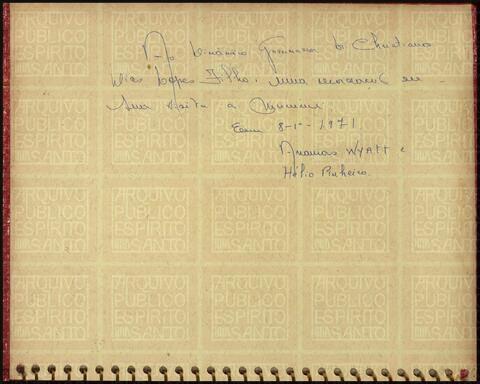 Ao Dinâmico Governador Dr. Christiano
Dias Lopes Filho, uma recordação de
sua visita a
Em 8-1-1971
Ananias WYATT e
Hélio Pinheiro
ARQUIVO PÚBLICO ESPÍRITO SANTO